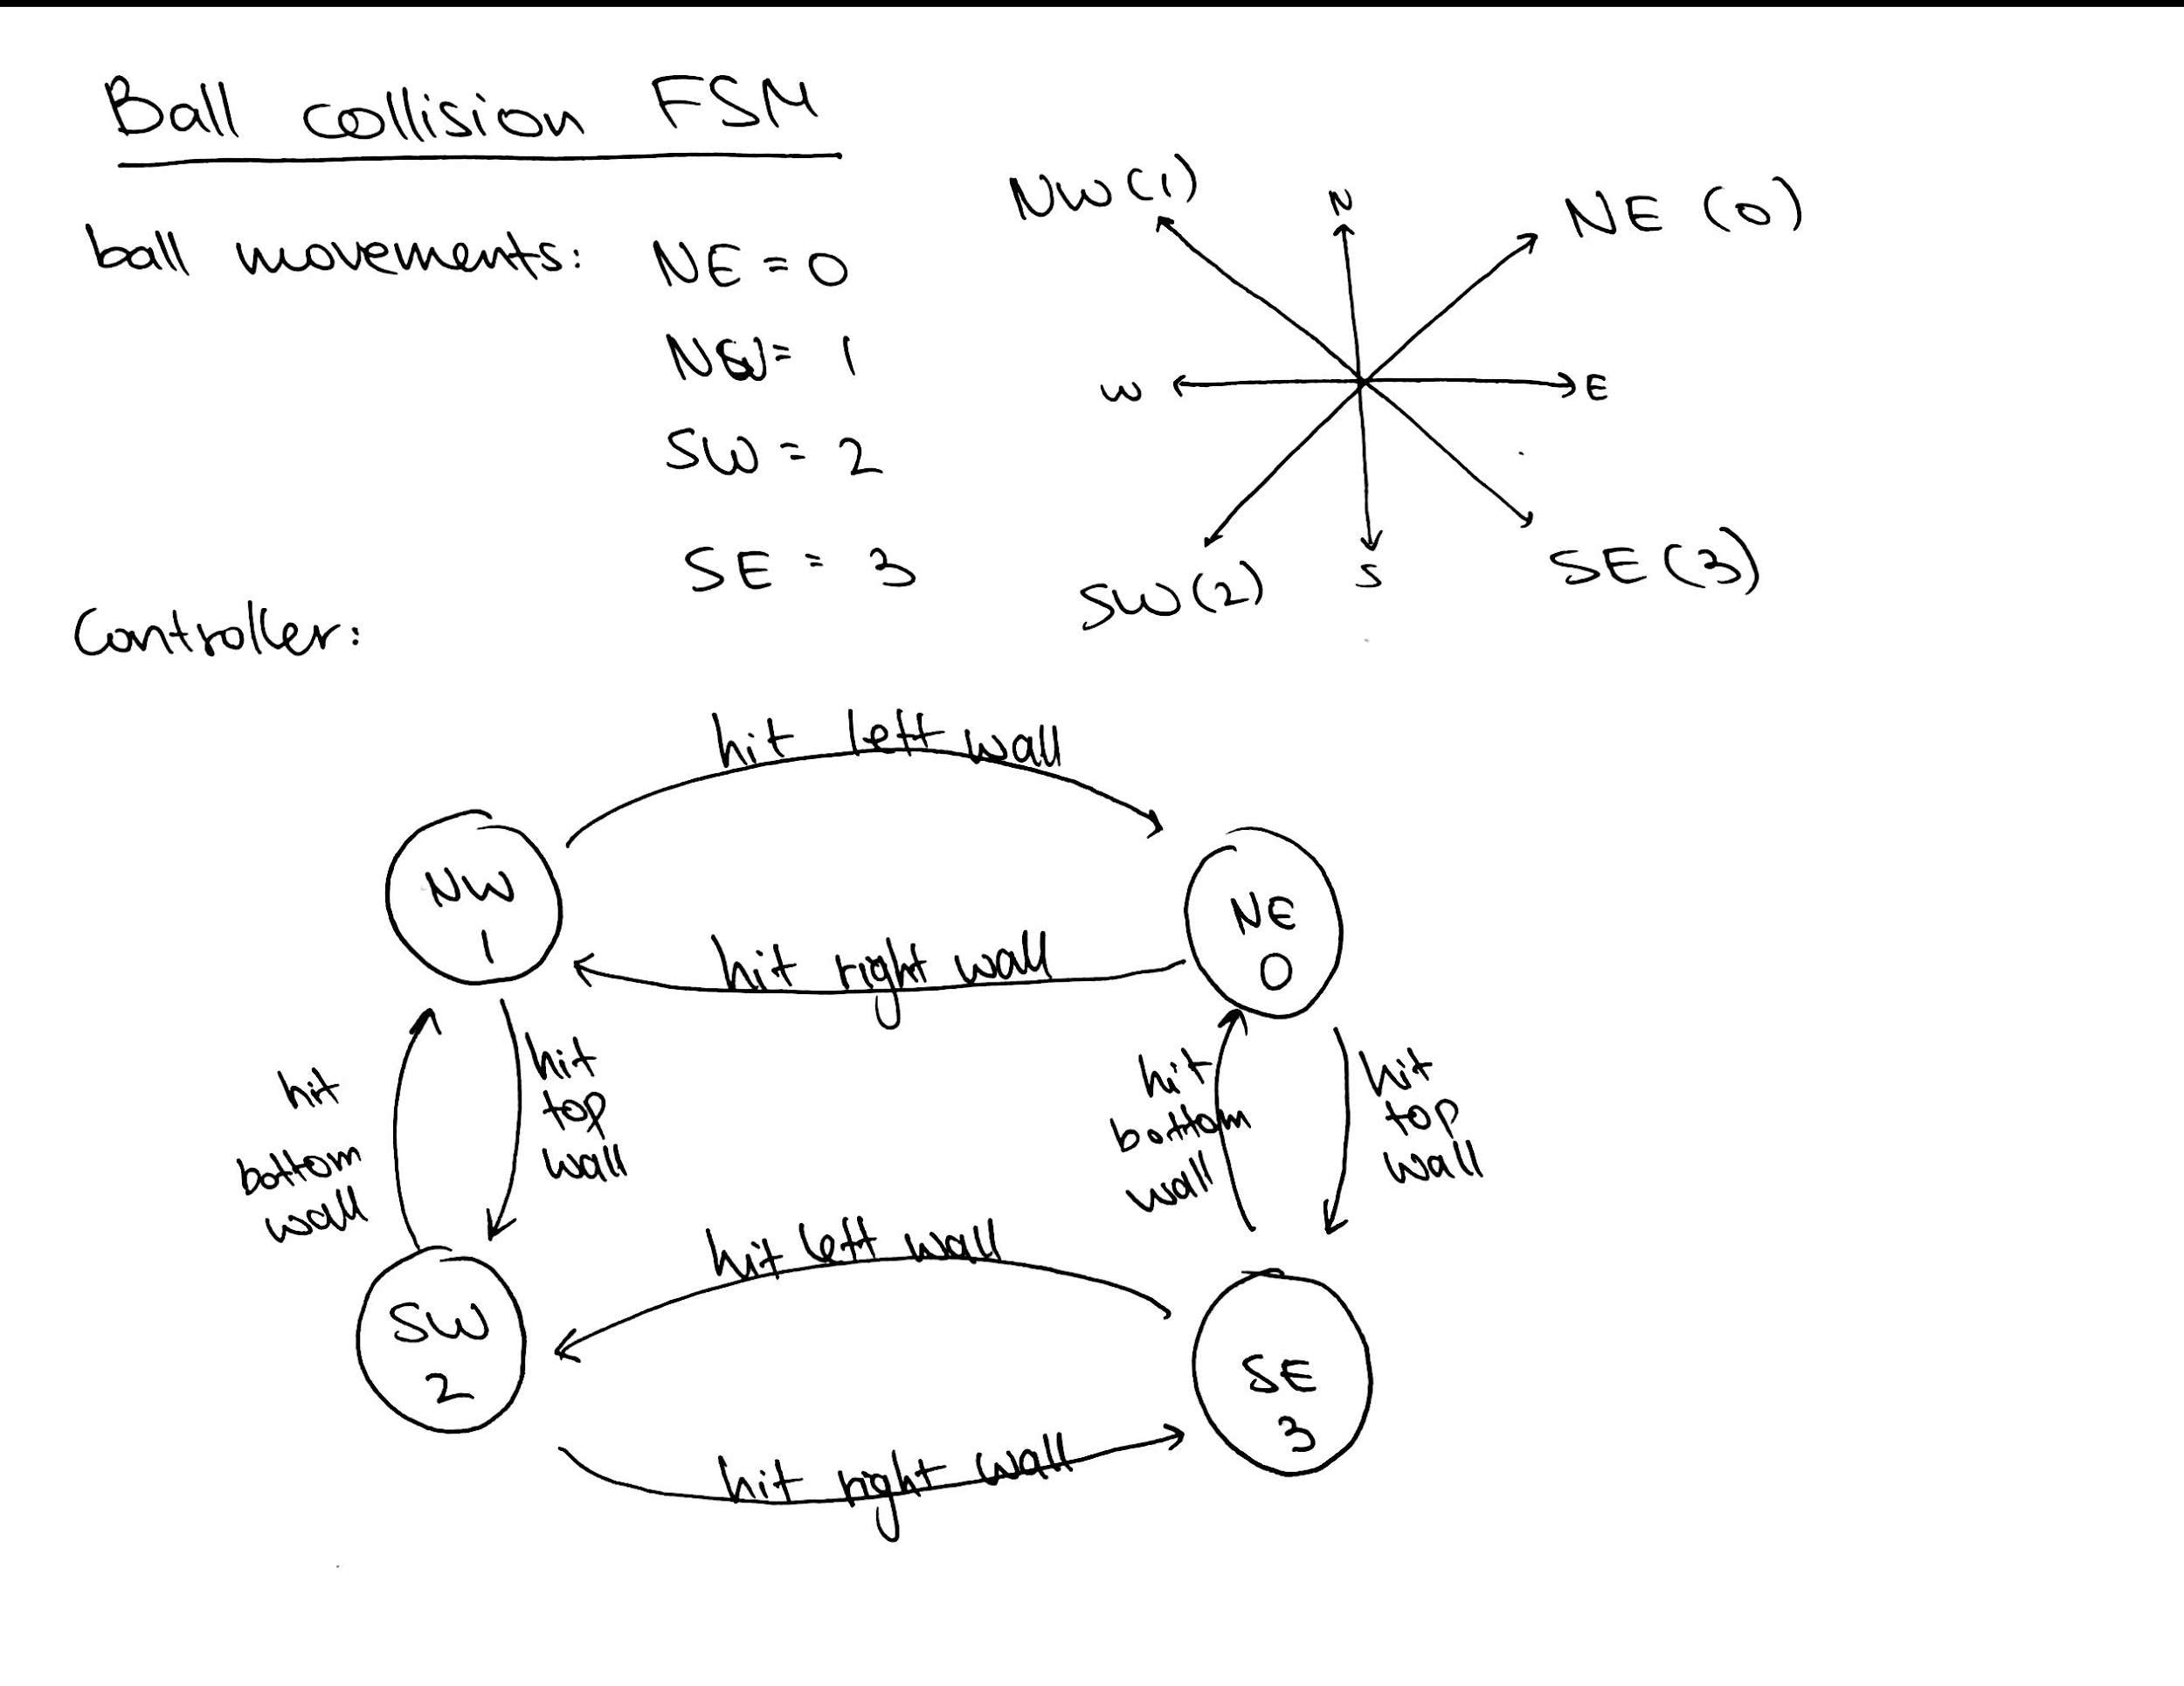 Ball collision FSM
ball movements: NE = 0
NW = 1
SW = 2
SE = 3
NW (1)
N
NE (0)
W
E
SW (2)
S
SE (3)
Controller:
hit left wall
NW
1
NE
0
hit right wall
hit
bottom
wall
hit
top
wall
hit
bottom
wall
hit
top
wall
hit left wall
SW
2
SE
3
hit right wall